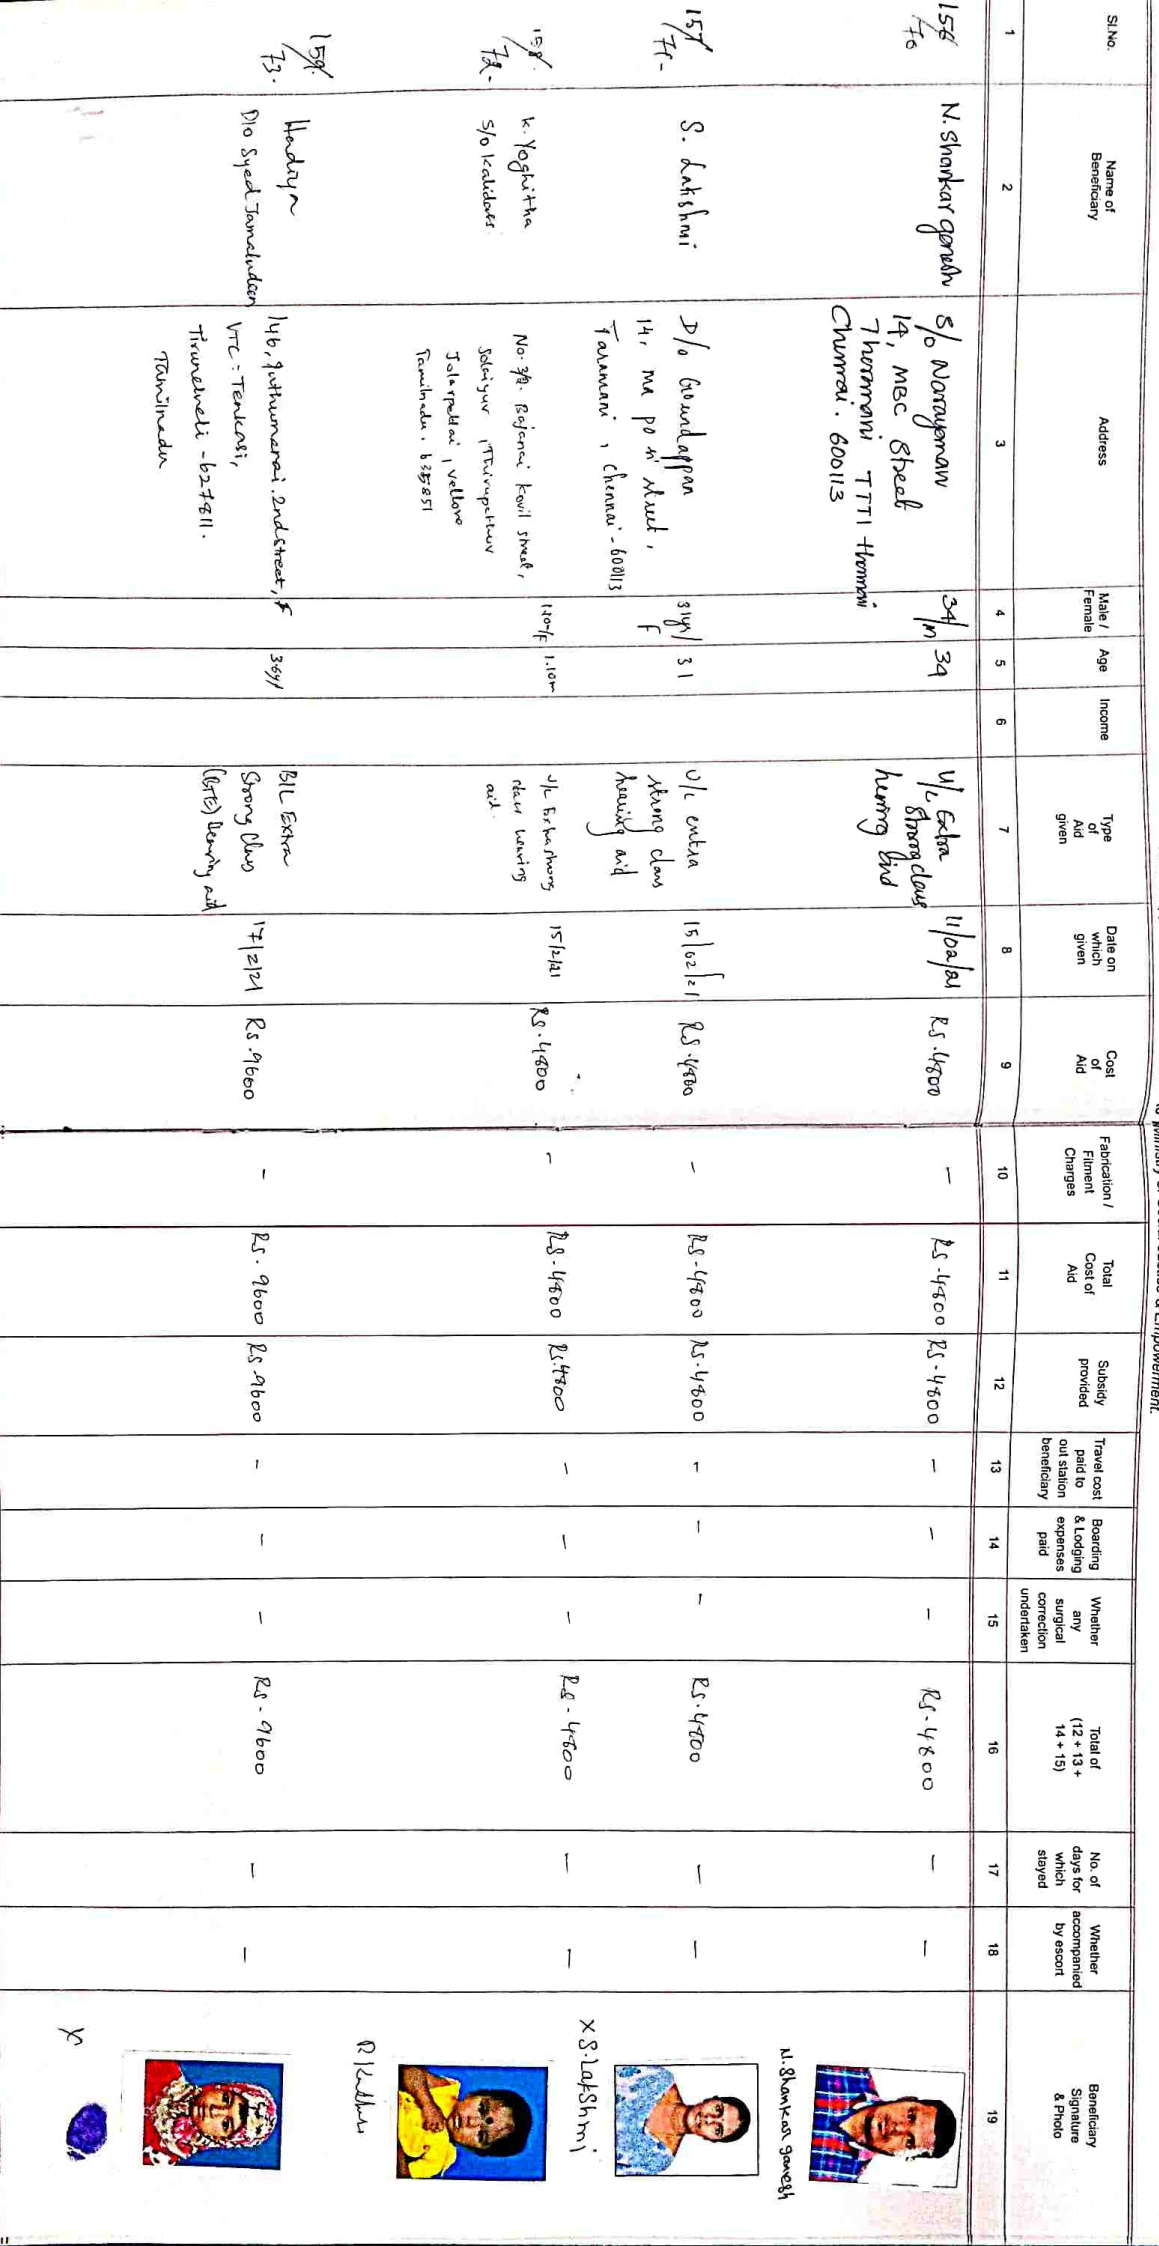 Ministry of Social Justice & Empowerment.
Sl.No.
Name of
Beneficiary
Address
Male /
Female
Age
Income
Type
of
Aid
given
Date on
which
given
Cost
of
Aid
Fabrication /
Fitment
Charges
Total
Cost of
Aid
Subsidy
provided
Travel cost
paid to
out station
beneficiary
Boarding
& Lodging
expenses
paid
Whether
any
surgical
correction
undertaken
Total of
(12 + 13 +
14 + 15)
No. of
days for
which
stayed
Whether
accompanied
by escort
Beneficiary
Signature
& Photo
1 2 3 4 5 6 7 8 9 10 11 12 13 14 15 16 17 18 19
156
70
N. Shankar ganesh
S/o Narayanan
14, MBC Street
Tharamani TTTI
Chennai. 600113
34/m
34
U/L Extra
Strong class
hearing aid
11/02/21
Rs.4800
-
Rs.4800
Rs.4800
-
-
-
Rs.4800
-
-
N. Shankar ganesh
157
71-
S. Lakshmi
D/o Goundappan
14, ma po si street,
Taramani, Chennai - 600113
31yr/
F
31
U/L extra
strong class
hearing aid
15/02/21
Rs.4800
-
Rs.4800
Rs.4800
-
-
-
Rs.4800
-
-
x S. Lakshmi
158.
72-
K. Yoghitha
S/o Kalidass
No. 3/2. Bajanai Kovil street,
Solaiyur, Thirupathur
Jolarpettai, vellore
Tamilnadu. 635851
1.10m
U/L Extra strong
class hearing
aid.
15/2/21
Rs.4800
-
Rs.4800
Rs.4800
-
-
-
Rs.4800
-
-
159.
73.
Hadiya
D/o Syed Jamaludeen
146, Puthumanai. 2nd street,
VTC: Tenkasi,
Tirunelveli - 627811.
Tamilnadu
F
3.6y/
B/L Extra
Strong Class
(BTE) Hearing aid
17/2/21
Rs.9600
-
Rs.9600
Rs.9600
-
-
-
Rs.9600
-
-
X